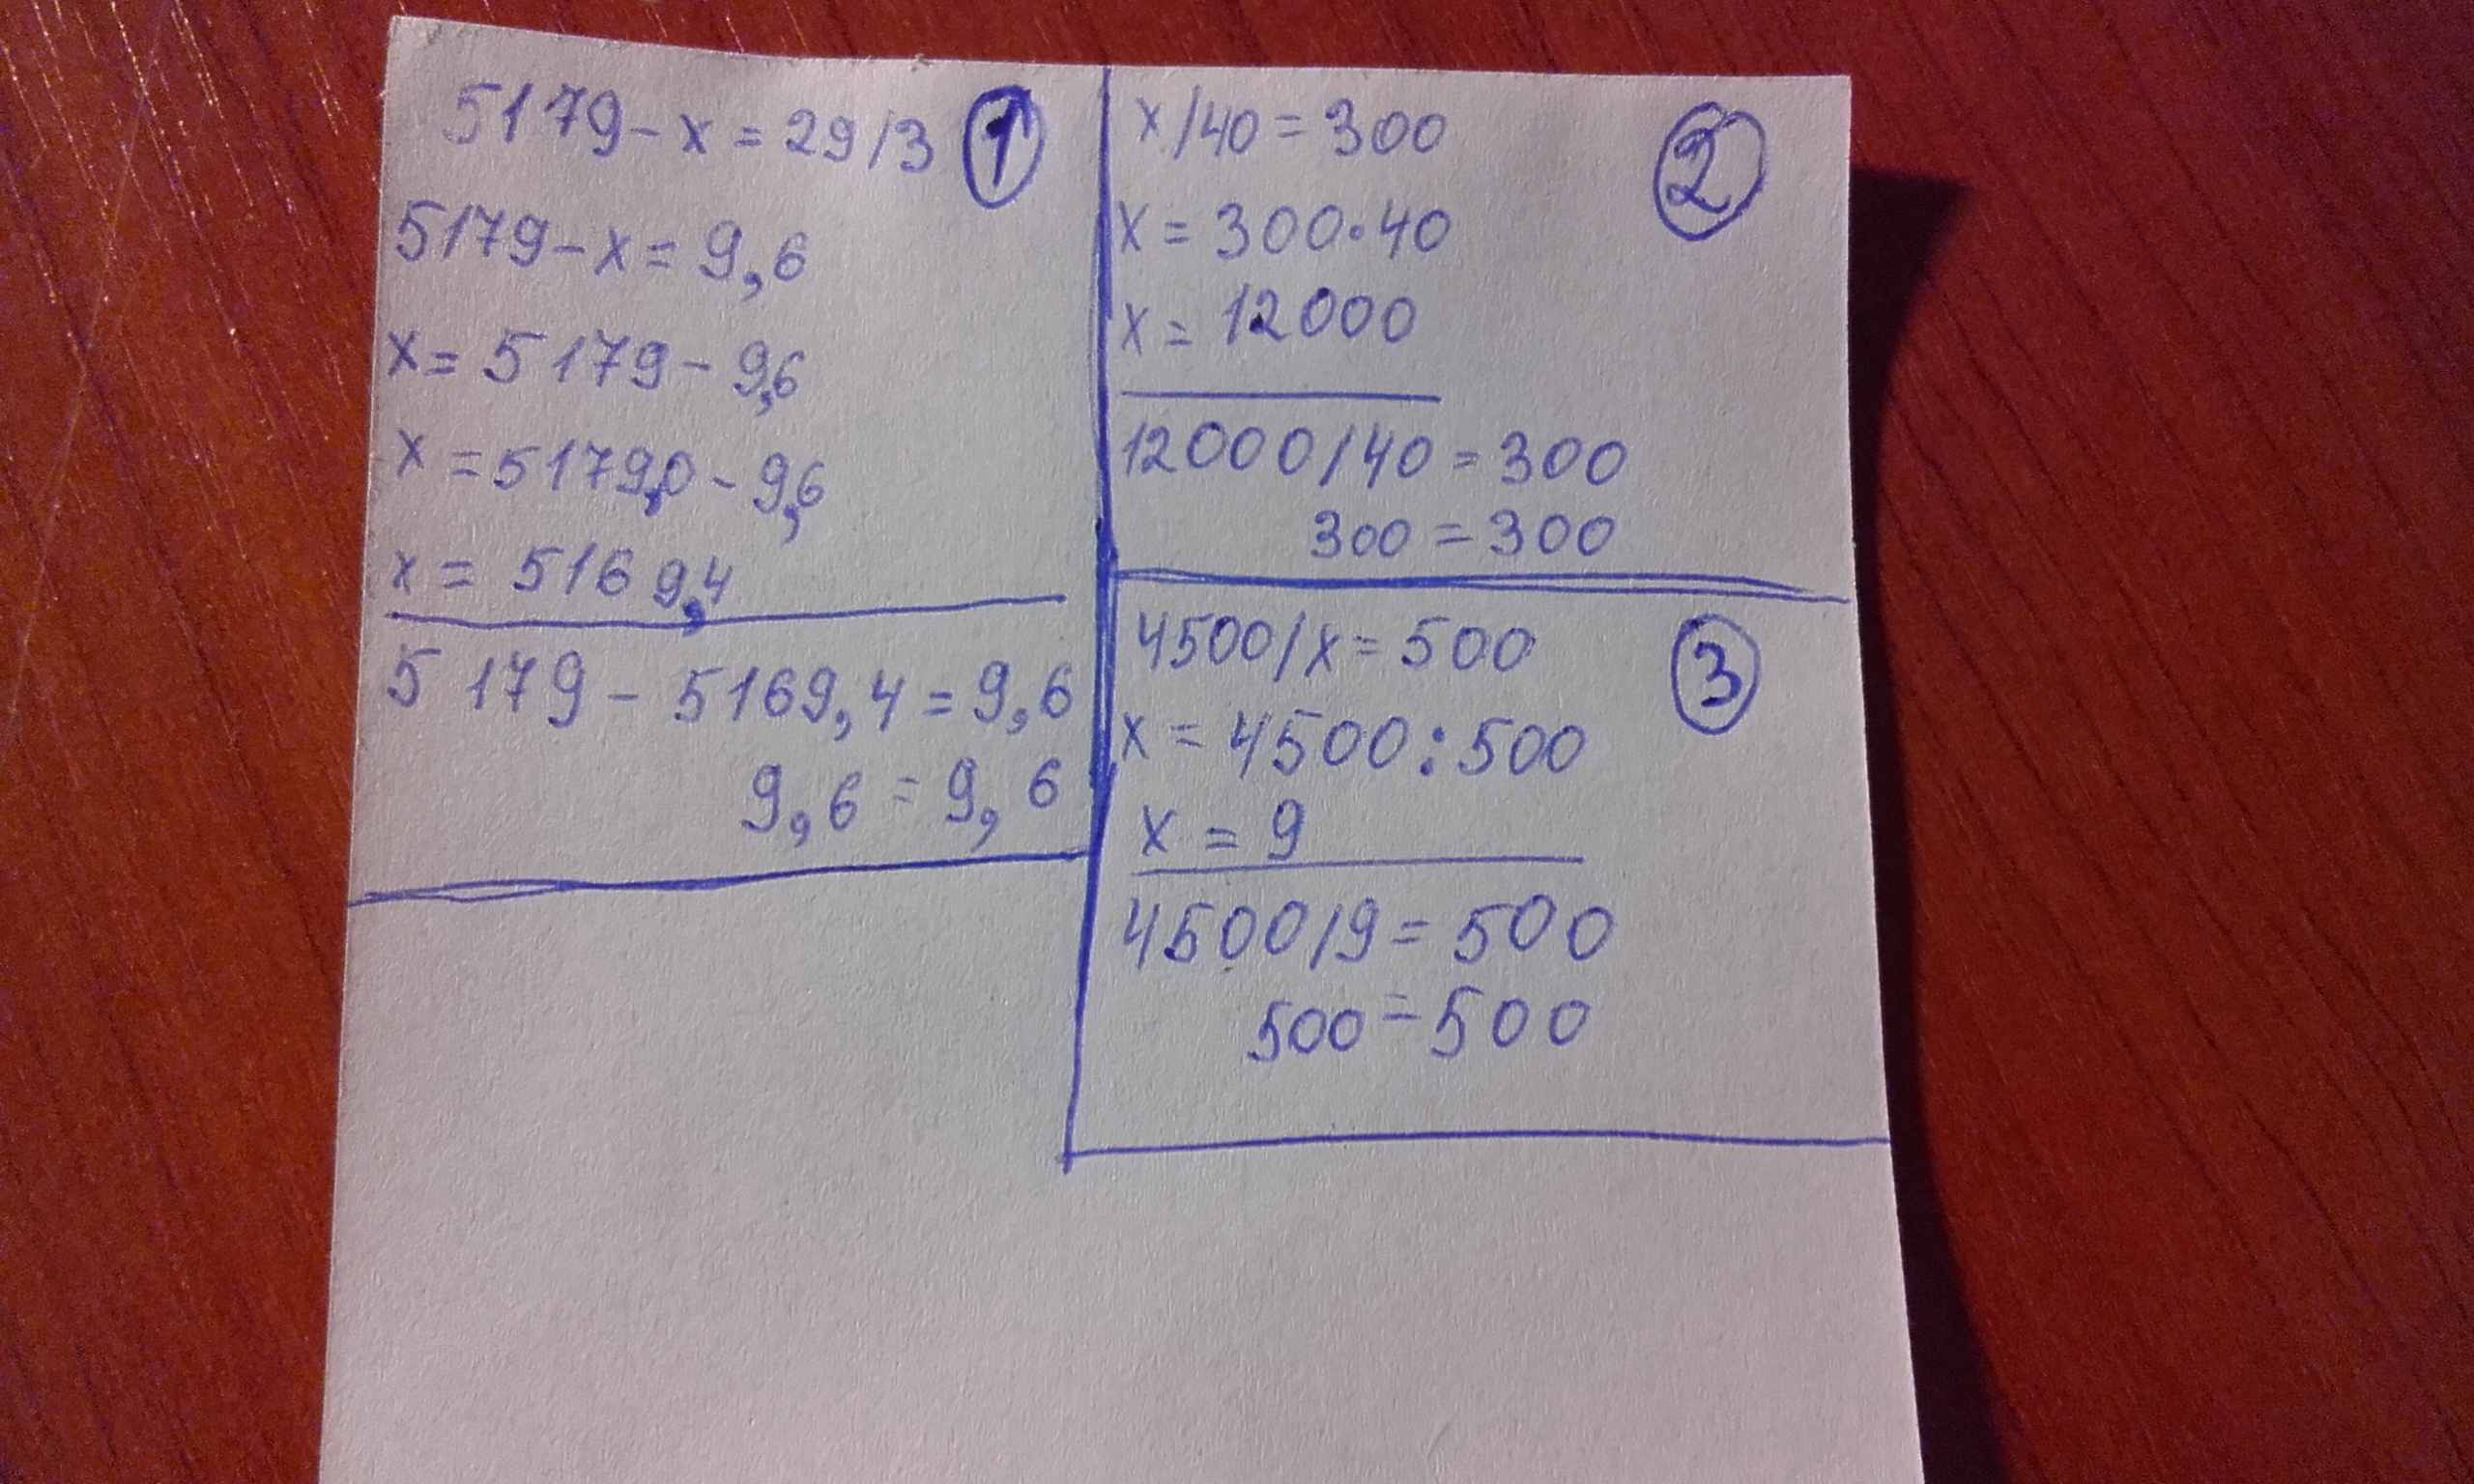 5179 - x = 29/3 1
5179 - x = 9,6
x = 5179 - 9,6
x = 5179,0 - 9,6
x = 5169,4
5179 - 5169,4 = 9,6
9,6 = 9,6
x/40 = 300 2
x = 300·40
x = 12000
12000/40 = 300
300 = 300
4500/x = 500 3
x = 4500:500
x = 9
4500/9 = 500
500 = 500